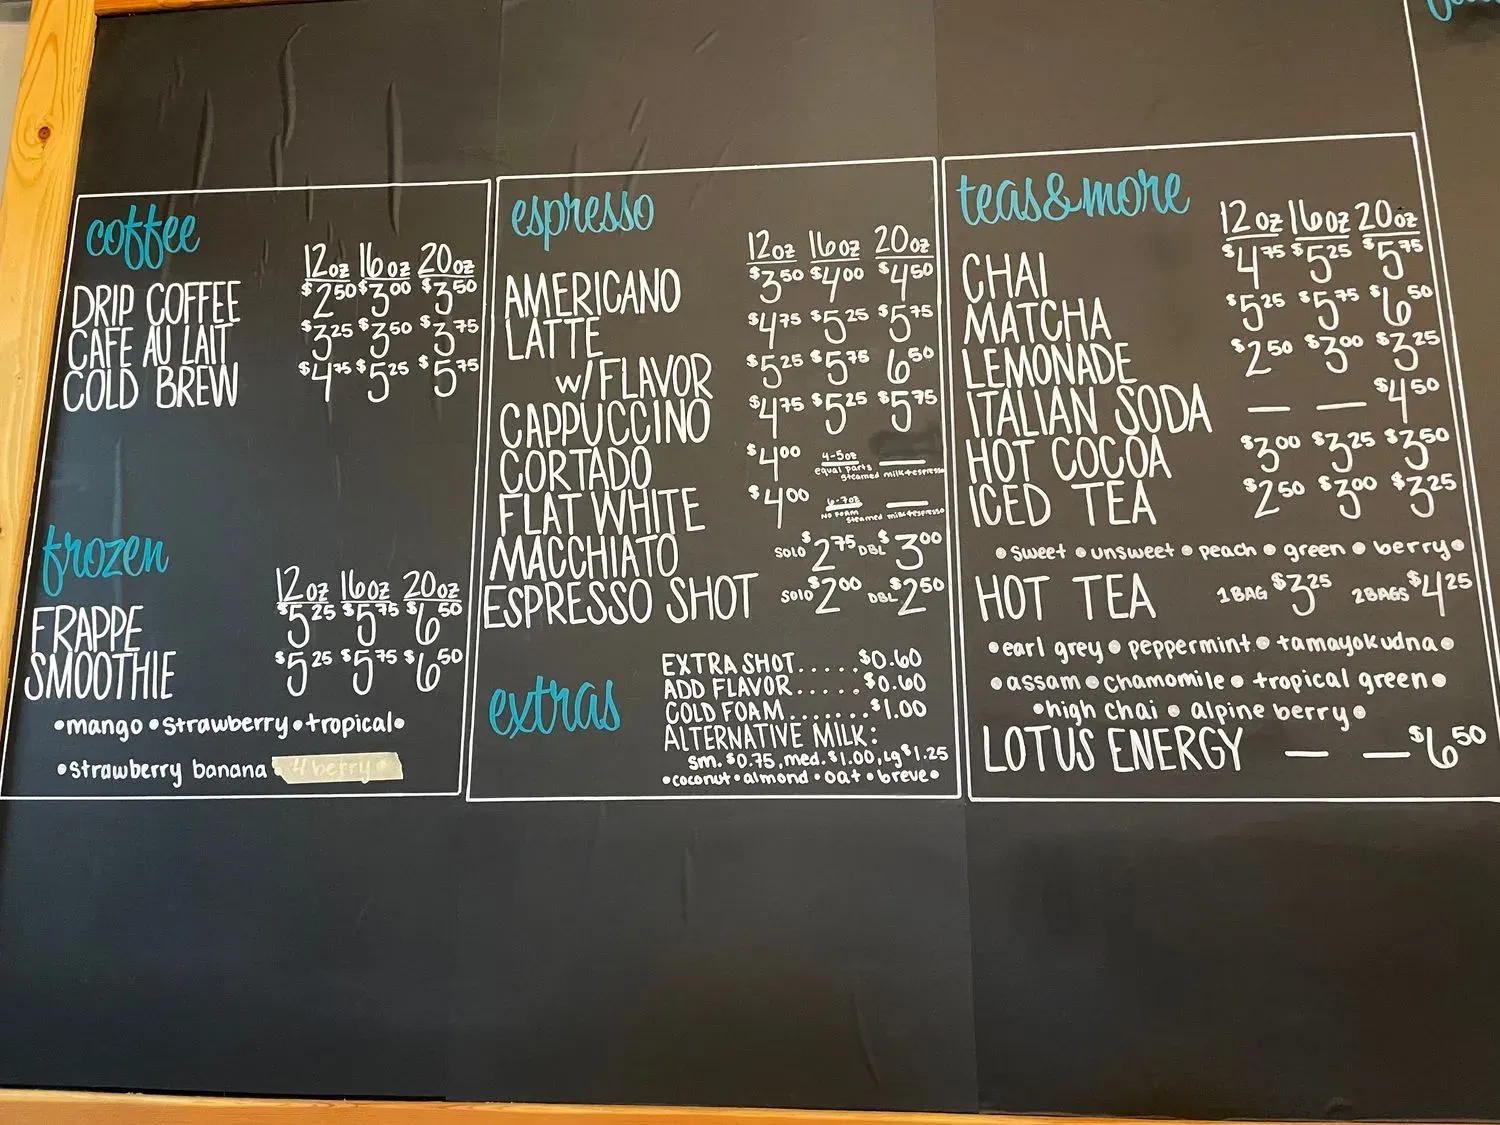 coffee
12oz 16oz 20oz
DRIP COFFEE $2.50 $3.00 $3.50
CAFE AU LAIT $3.25 $3.50 $3.75
COLD BREW $4.75 $5.25 $5.75
frozen
12oz 16oz 20oz
FRAPPE $5.25 $5.75 $6.50
SMOOTHIE $5.25 $5.75 $6.50
•mango •strawberry •tropical•
•strawberry banana • 4 berry •
espresso
12oz 16oz 20oz
AMERICANO $3.50 $4.00 $4.50
LATTE $4.75 $5.25 $5.75
w/FLAVOR $5.25 $5.75 6.50
CAPPUCCINO $4.75 $5.25 $5.75
CORTADO $4.00 4-5oz —
equal parts steamed milk+espresso
FLAT WHITE $4.00 6-7oz —
NO FOAM steamed milk+espresso
MACCHIATO SOLO $2.75 DBL $3.00
ESPRESSO SHOT SOLO $2.00 DBL $2.50
extras
EXTRA SHOT.....$0.60
ADD FLAVOR.....$0.60
COLD FOAM.......$1.00
ALTERNATIVE MILK:
sm. $0.75, med. $1.00, Lg $1.25
•coconut •almond •oat •breve•
teas&more
12oz 16oz 20oz
CHAI $4.75 $5.25 $5.75
MATCHA $5.25 $5.75 $6.50
LEMONADE $2.50 $3.00 $3.25
ITALIAN SODA — — $4.50
HOT COCOA $3.00 $3.25 $3.50
ICED TEA $2.50 $3.00 $3.25
•sweet •unsweet •peach •green •berry•
HOT TEA 1BAG $3.25 2BAGS $4.25
•earl grey •peppermint •tamayokudna•
•assam •chamomile •tropical green•
•high chai •alpine berry•
LOTUS ENERGY — — $6.50